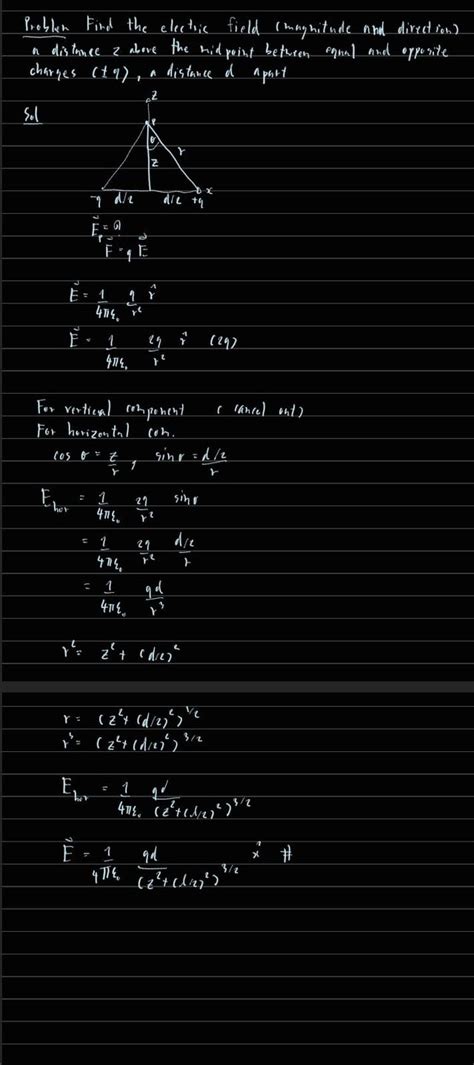 Problem Find the electric field (magnitude and direction)
a distance z above the midpoint between equal and opposite
charges (±q), a distance d apart
Sol
z
P
θ r
z
-q d/2 d/2 +q x
E⃗ₚ = Q
F⃗ = q E⃗
E⃗ = 1/4πε₀ q/r² r̂
E⃗ = 1/4πε₀ 2q/r² r̂ (2q)
For vertical component (cancel out)
For horizontal com.
cos θ = z/r , sin θ = d/2/r
E_hor = 1/4πε₀ 2q/r² sin θ
= 1/4πε₀ 2q/r² d/2/r
= 1/4πε₀ qd/r³
r² = z² + (d/2)²
r = (z² + (d/2)²)^1/2
r³ = (z² + (d/2)²)^3/2
E_hor = 1/4πε₀ qd/(z² + (d/2)²)^3/2
E⃗ = 1/4πε₀ qd/(z² + (d/2)²)^3/2 x̂ #